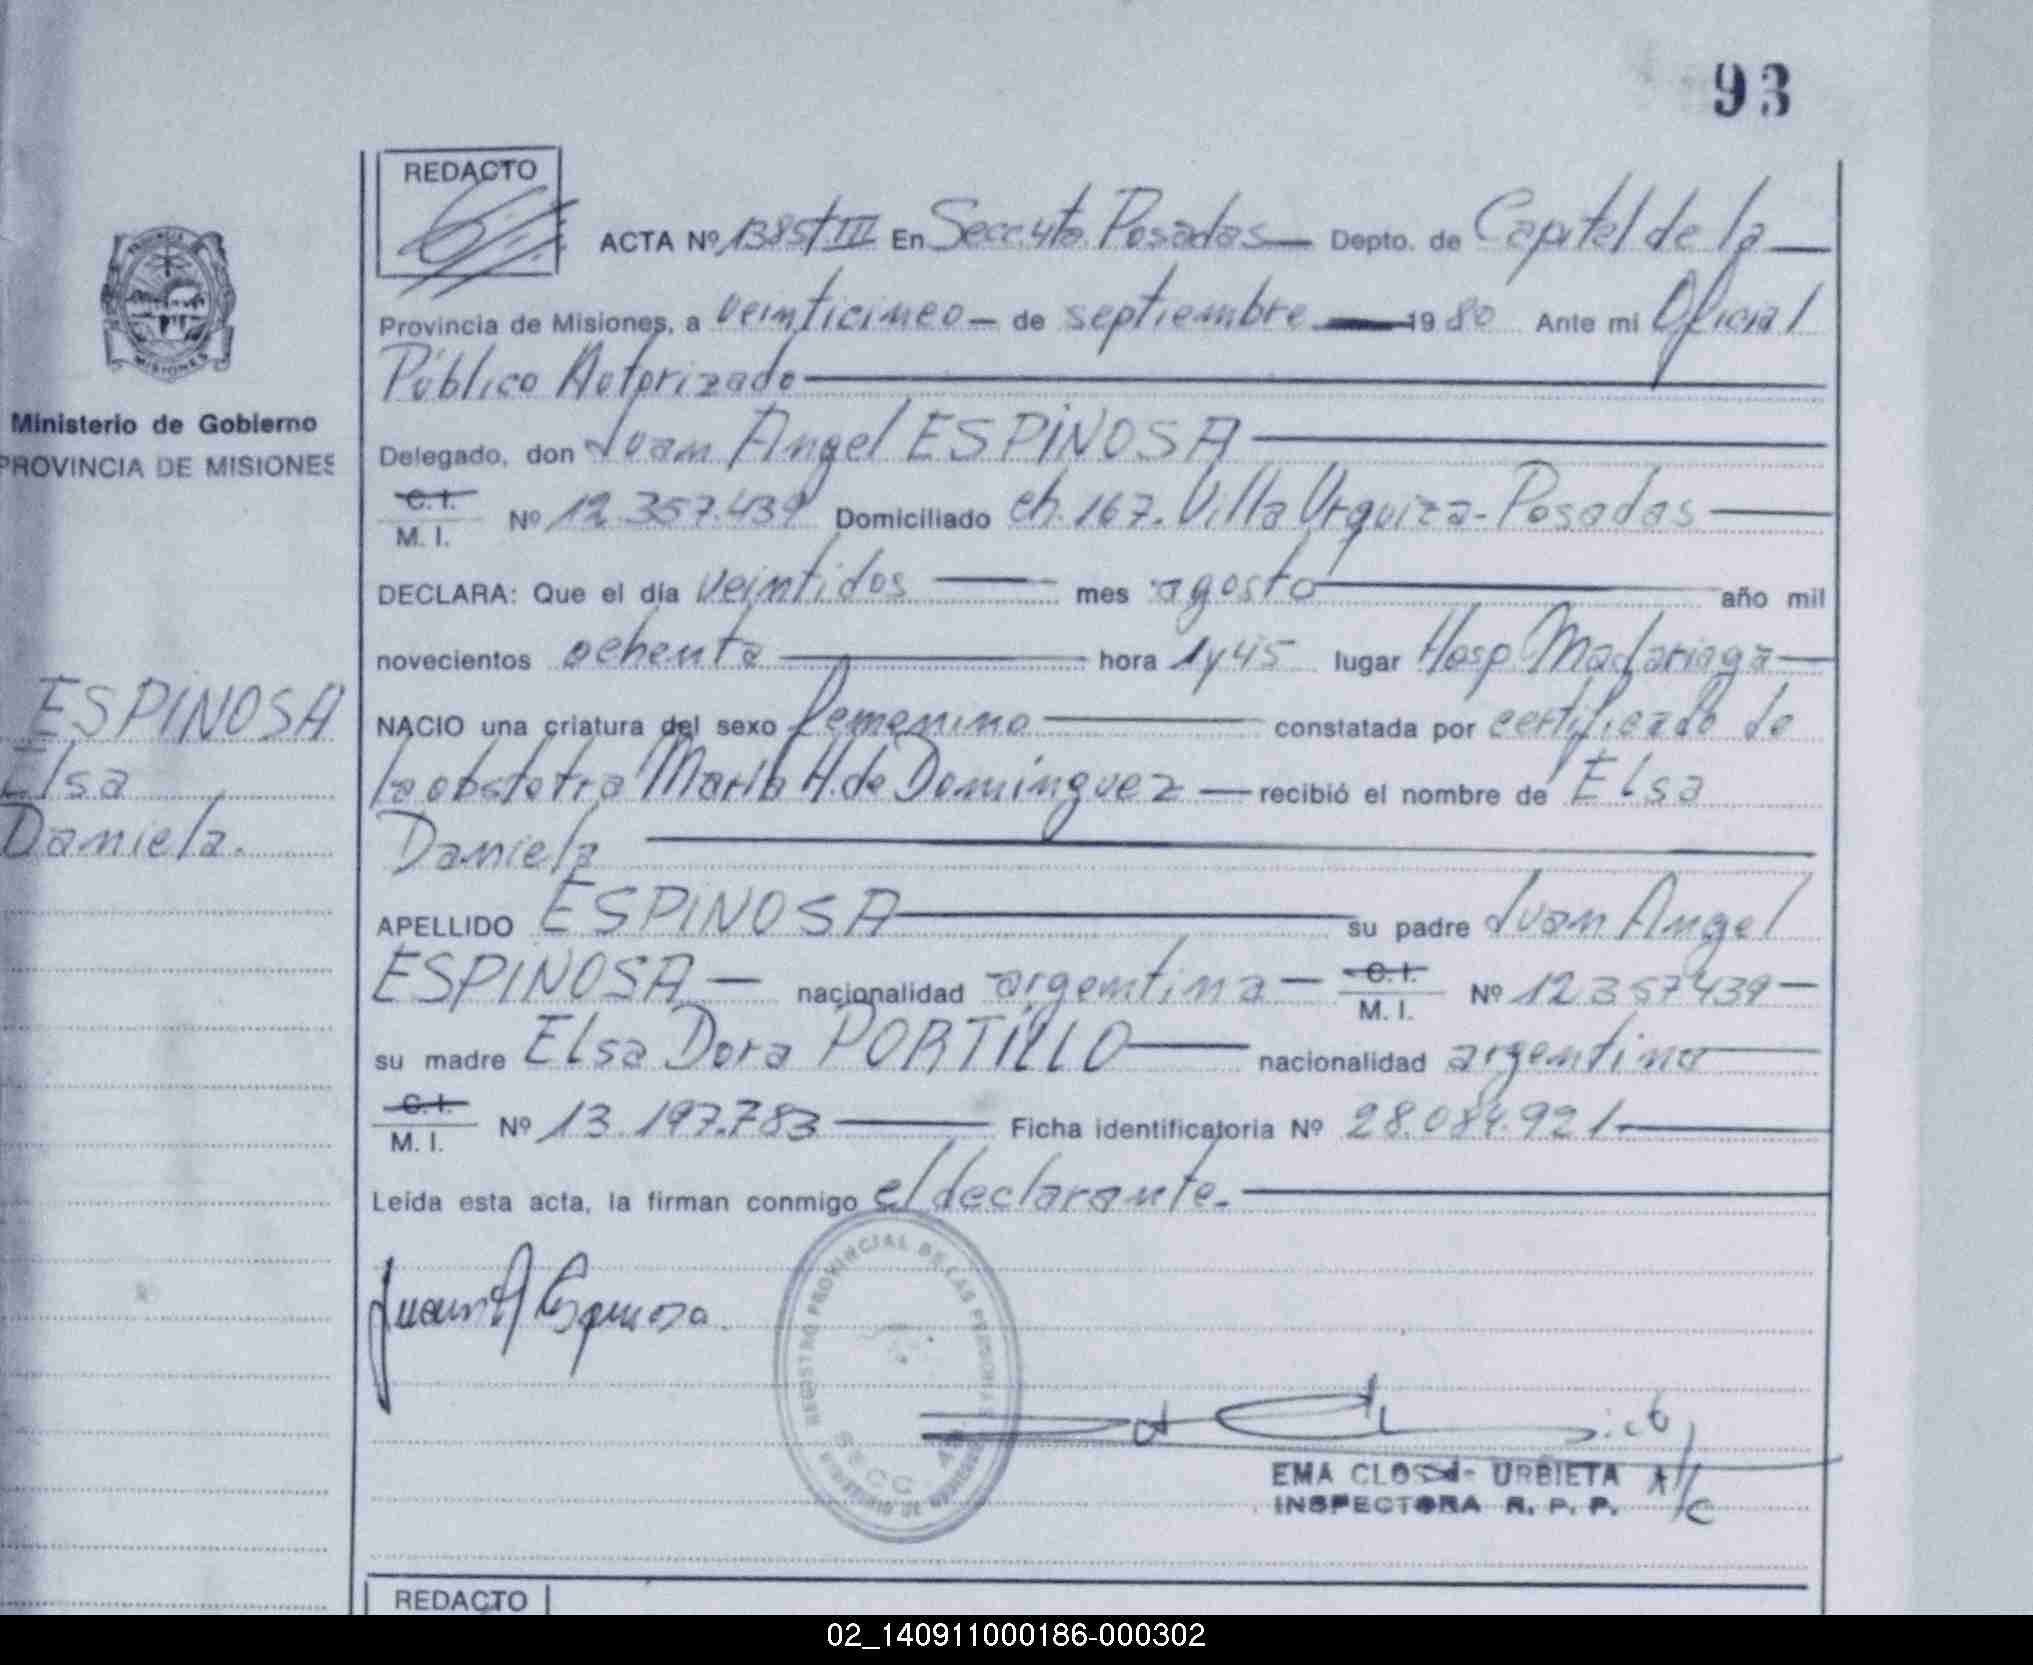 93
REDACTO
ACTA Nº 1385/III En Secc. 4ta. Posadas Depto. de Capital de la
Provincia de Misiones, a veinticinco de septiembre 1980 Ante mi Oficial
Público Autorizado
Delegado, don Juan Angel ESPINOSA
C. I.
M. I.
Nº 12.357.439 Domiciliado ch. 167. Villa Urquiza - Posadas
DECLARA: Que el día veintidos mes agosto año mil
novecientos ochenta hora 1y45 lugar Hosp. Madariaga
NACIO una criatura del sexo femenino constatada por certificado de
la obstetra María H. de Dominguez recibió el nombre de Elsa
Daniela
APELLIDO ESPINOSA su padre Juan Angel
ESPINOSA nacionalidad argentina C. I.
M. I.
Nº 12.357439
su madre Elsa Dora PORTILLO nacionalidad argentina
C. I.
M. I.
Nº 13.197.783 Ficha identificatoria Nº 28.084.921.
Leída esta acta, la firman conmigo el declarante.
Juan A Espinosa.
REGISTRO PROVINCIAL DE LAS PERSONAS
SECC. 4ta.
EMA CLOSS de URBIETA A/C
INSPECTORA R. P. P.
REDACTO
PROVINCIA
MISIONES
Ministerio de Gobierno
PROVINCIA DE MISIONES
ESPINOSA
Elsa
Daniela.
02_140911000186-000302